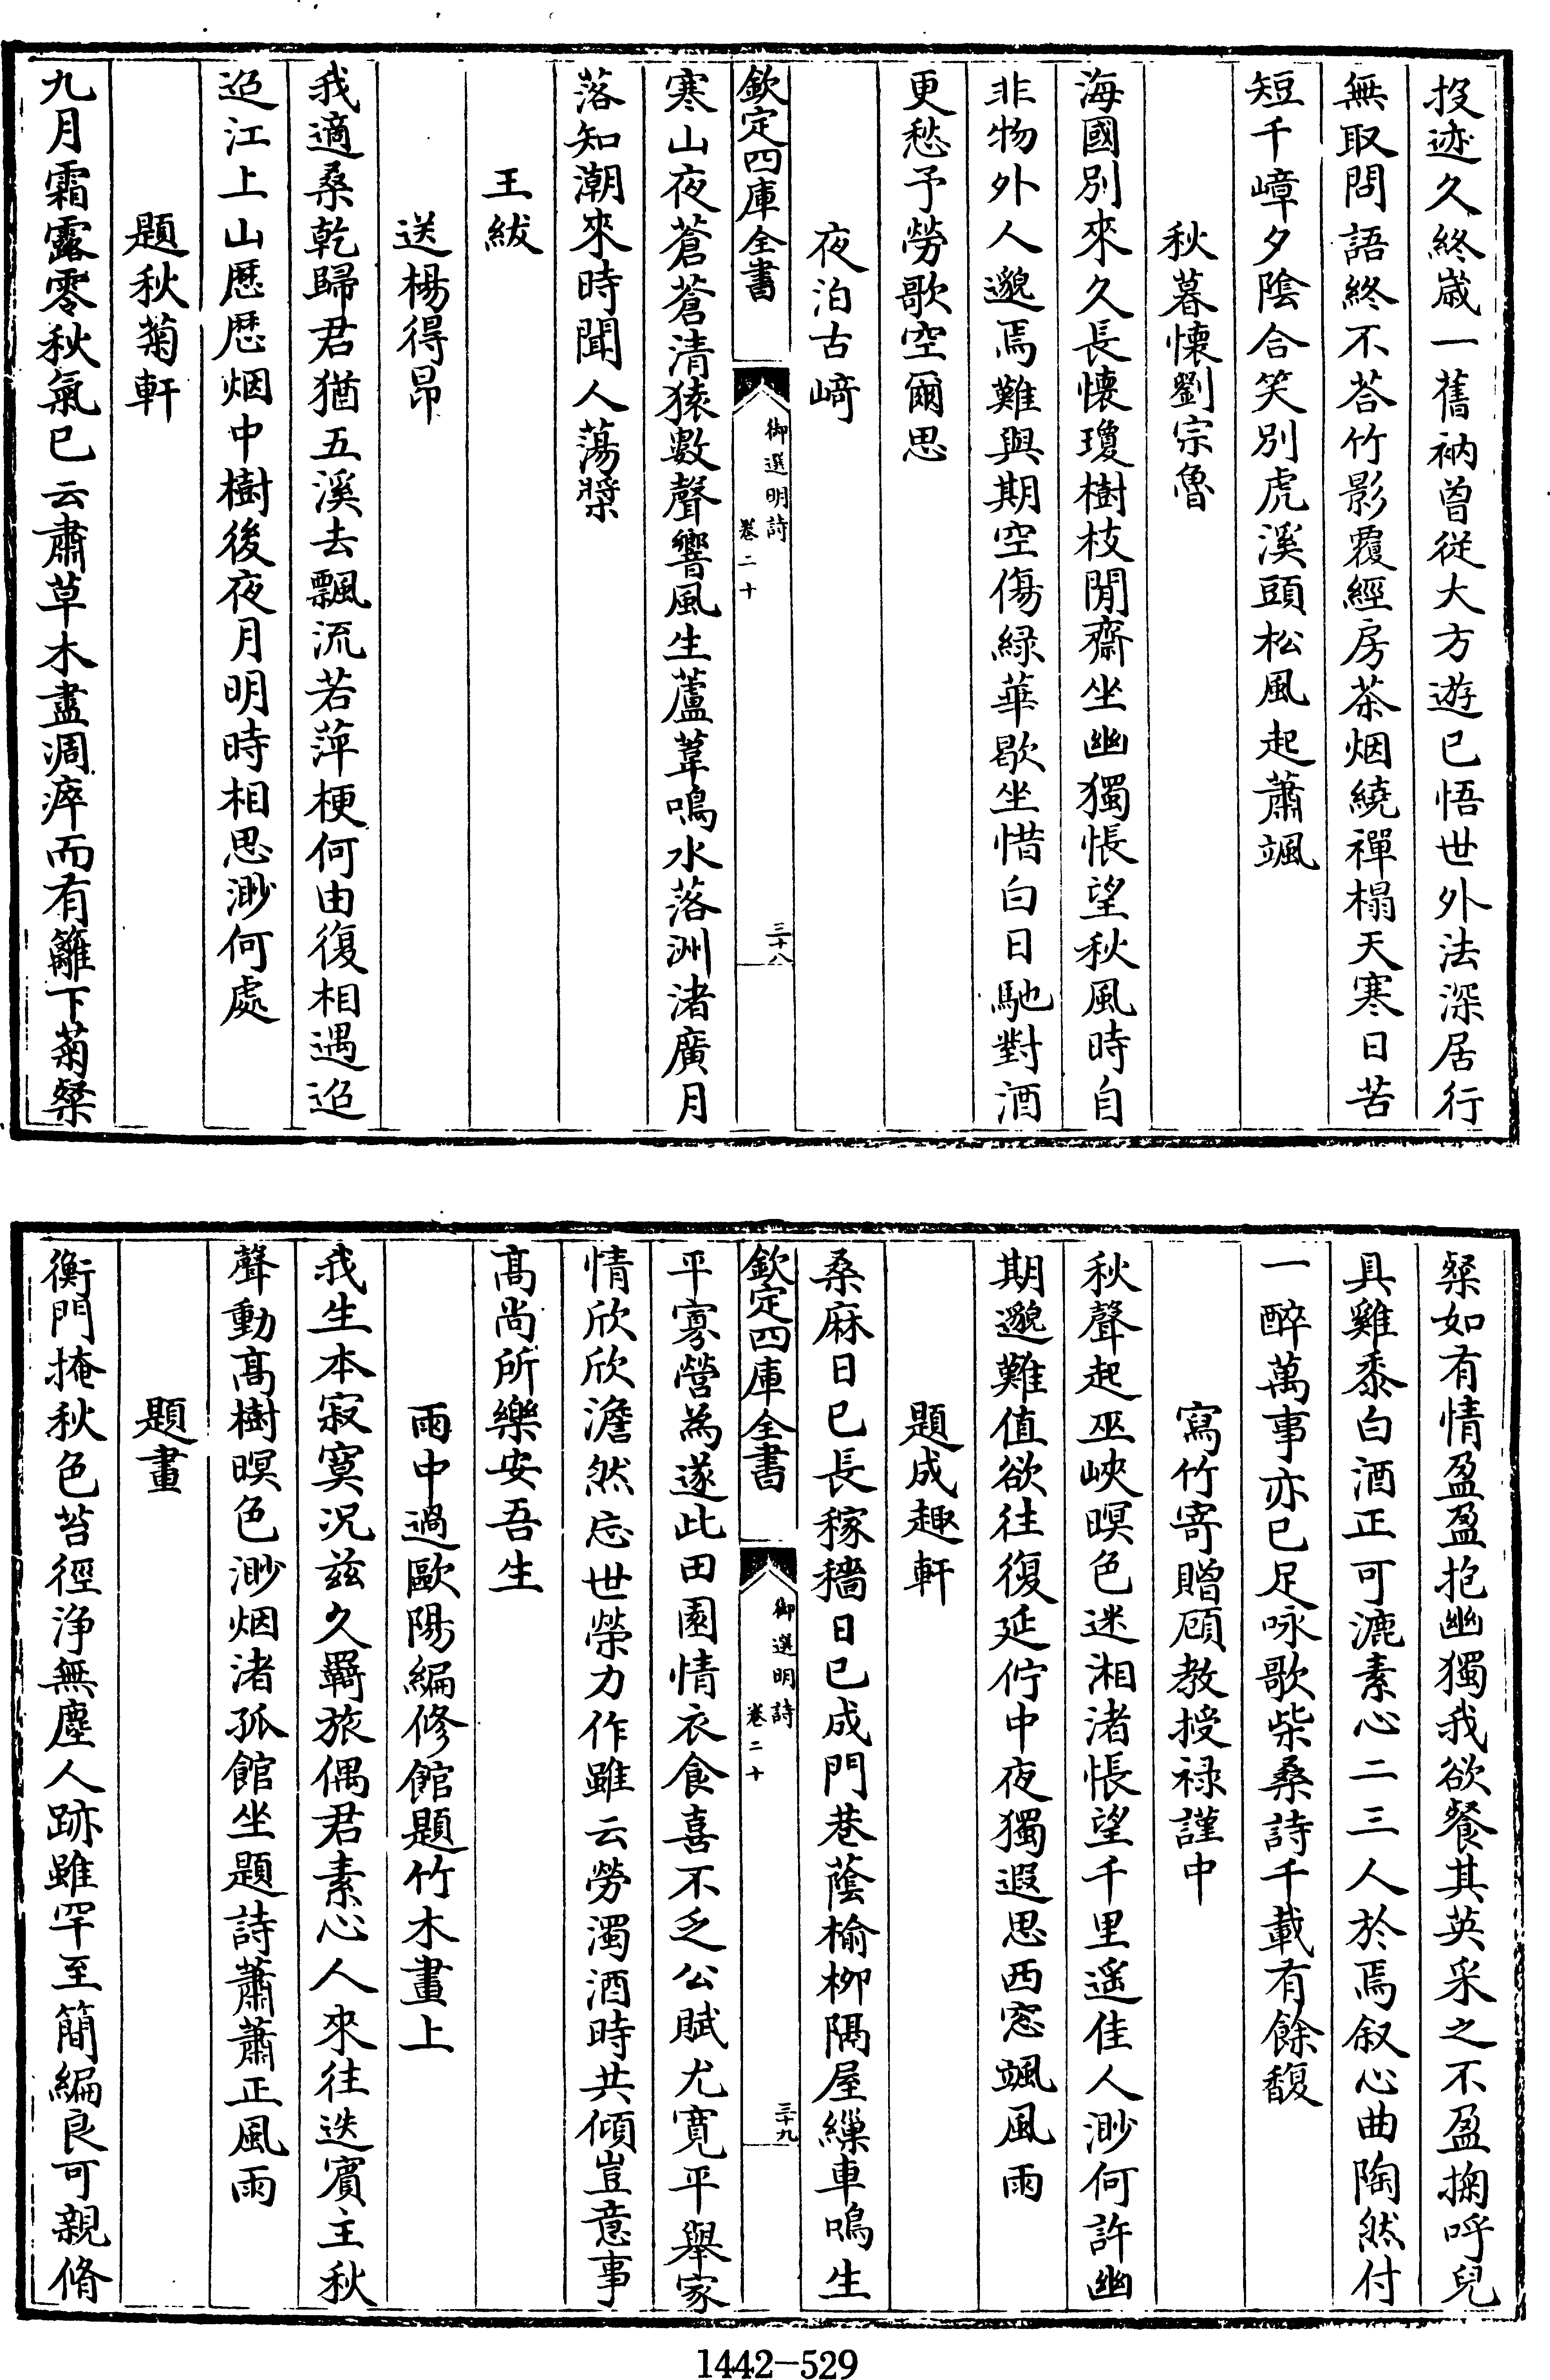 投迹久終歲一舊衲曾從大方遊已悟世外法深居行
無取問語終不荅竹影覆經房茶烟繞禪榻天寒日苦
短千嶂夕陰合笑別虎溪頭松風起蕭颯
秋暮懷劉宗魯
海國別來久長懷瓊樹枝閒齋坐幽獨悵望秋風時自
非物外人邈焉難與期空傷緑華歇坐惜白日馳對酒
更愁予勞歌空爾思
夜泊古﨑
欽定四庫全書
御選明詩
卷二十
三十八
寒山夜蒼蒼清猿數聲響風生蘆葦鳴水落洲渚廣月
落知潮來時聞人蕩槳
王紱
送楊得昂
我適桑乾歸君猶五溪去飄流若萍梗何由復相遇迢
迢江上山歷歷烟中樹後夜月明時相思渺何處
題秋菊軒
九月霜露零秋氣已云肅草木盡凋瘁而有籬下菊粲
粲如有情盈盈抱幽獨我欲餐其英采之不盈掬呼兒
具雞黍白酒正可漉素心二三人於焉叙心曲陶然付
一醉萬事亦已足咏歌柴桑詩千載有餘馥
寫竹寄贈頋教授禄謹中
秋聲起巫峽暝色迷湘渚悵望千里遥佳人渺何許幽
期邈難值欲往復延佇中夜獨遐思西窓颯風雨
題成趣軒
桑麻日已長稼穡日已成門巷蔭榆栁隅屋繅車鳴生
欽定四庫全書
御選明詩
卷二十
三十九
平寡營為遂此田園情衣食喜不乏公賦尤寛平舉家
情欣欣澹然忘世榮力作雖云勞濁酒時共傾豈意事
髙尚所樂安吾生
雨中過歐陽編修館題竹木畫上
我生本寂寞况兹久羇旅偶君素心人來往迭賓主秋
聲動髙樹暝色渺烟渚孤館坐題詩蕭蕭正風雨
題畫
衡門掩秋色苔徑浄無塵人跡雖罕至簡編良可親脩
1442—529